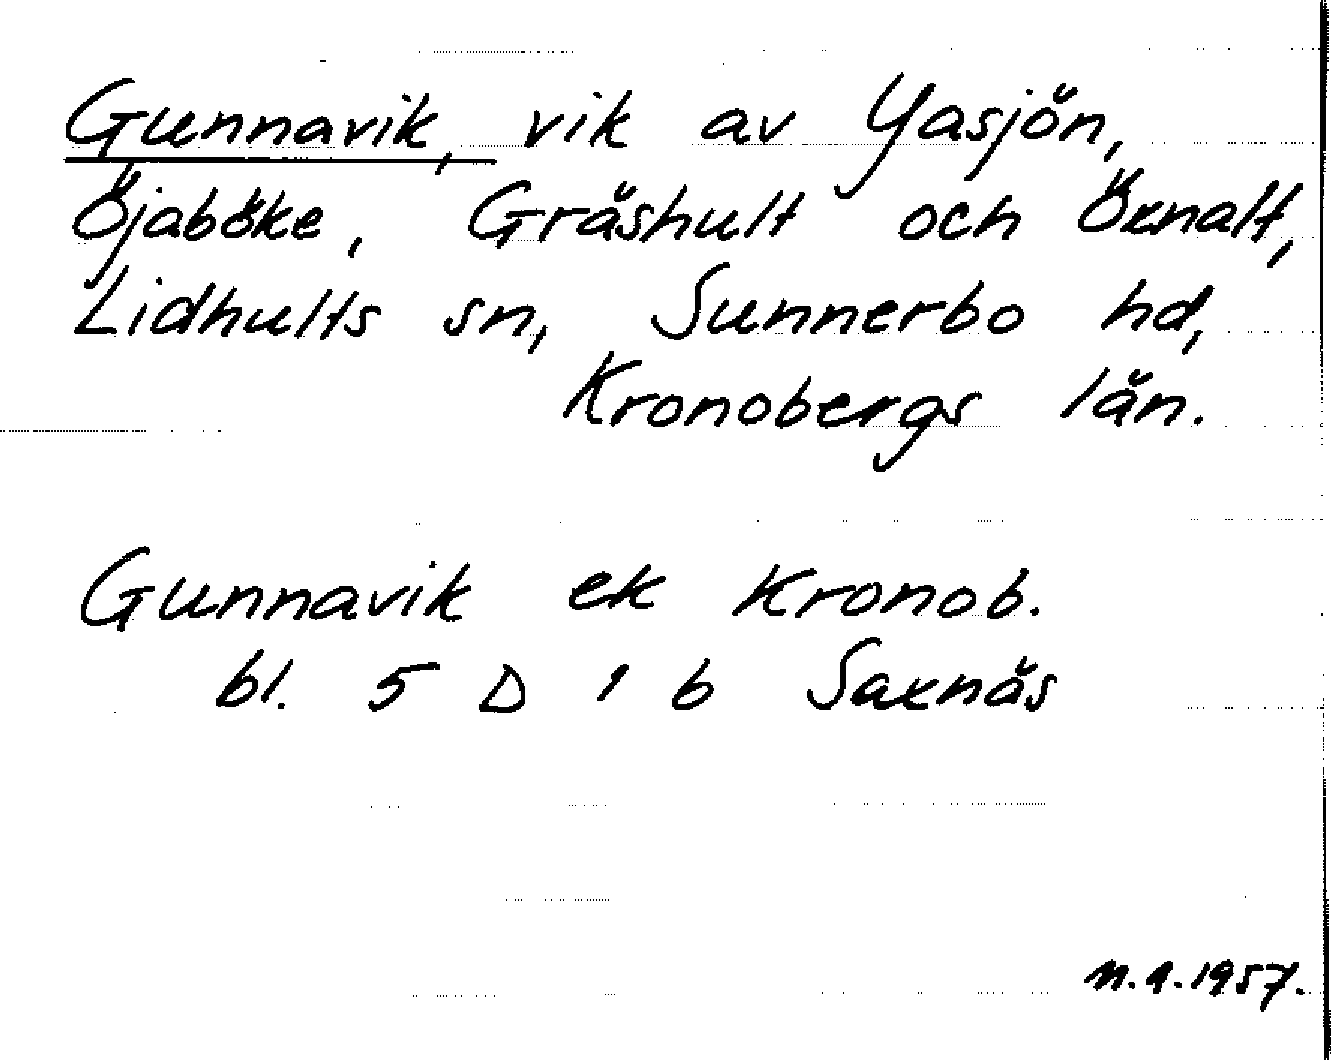 Gunnavik, vik av Yasjön,
Öjaböke, Gräshult och Öxnalt,
Lidhults sn, Sunnerbo hd,
Kronobergs län.
Gunnavik ek Kronob.
bl. 5 D 1 b Saxnäs
n.a.1957.